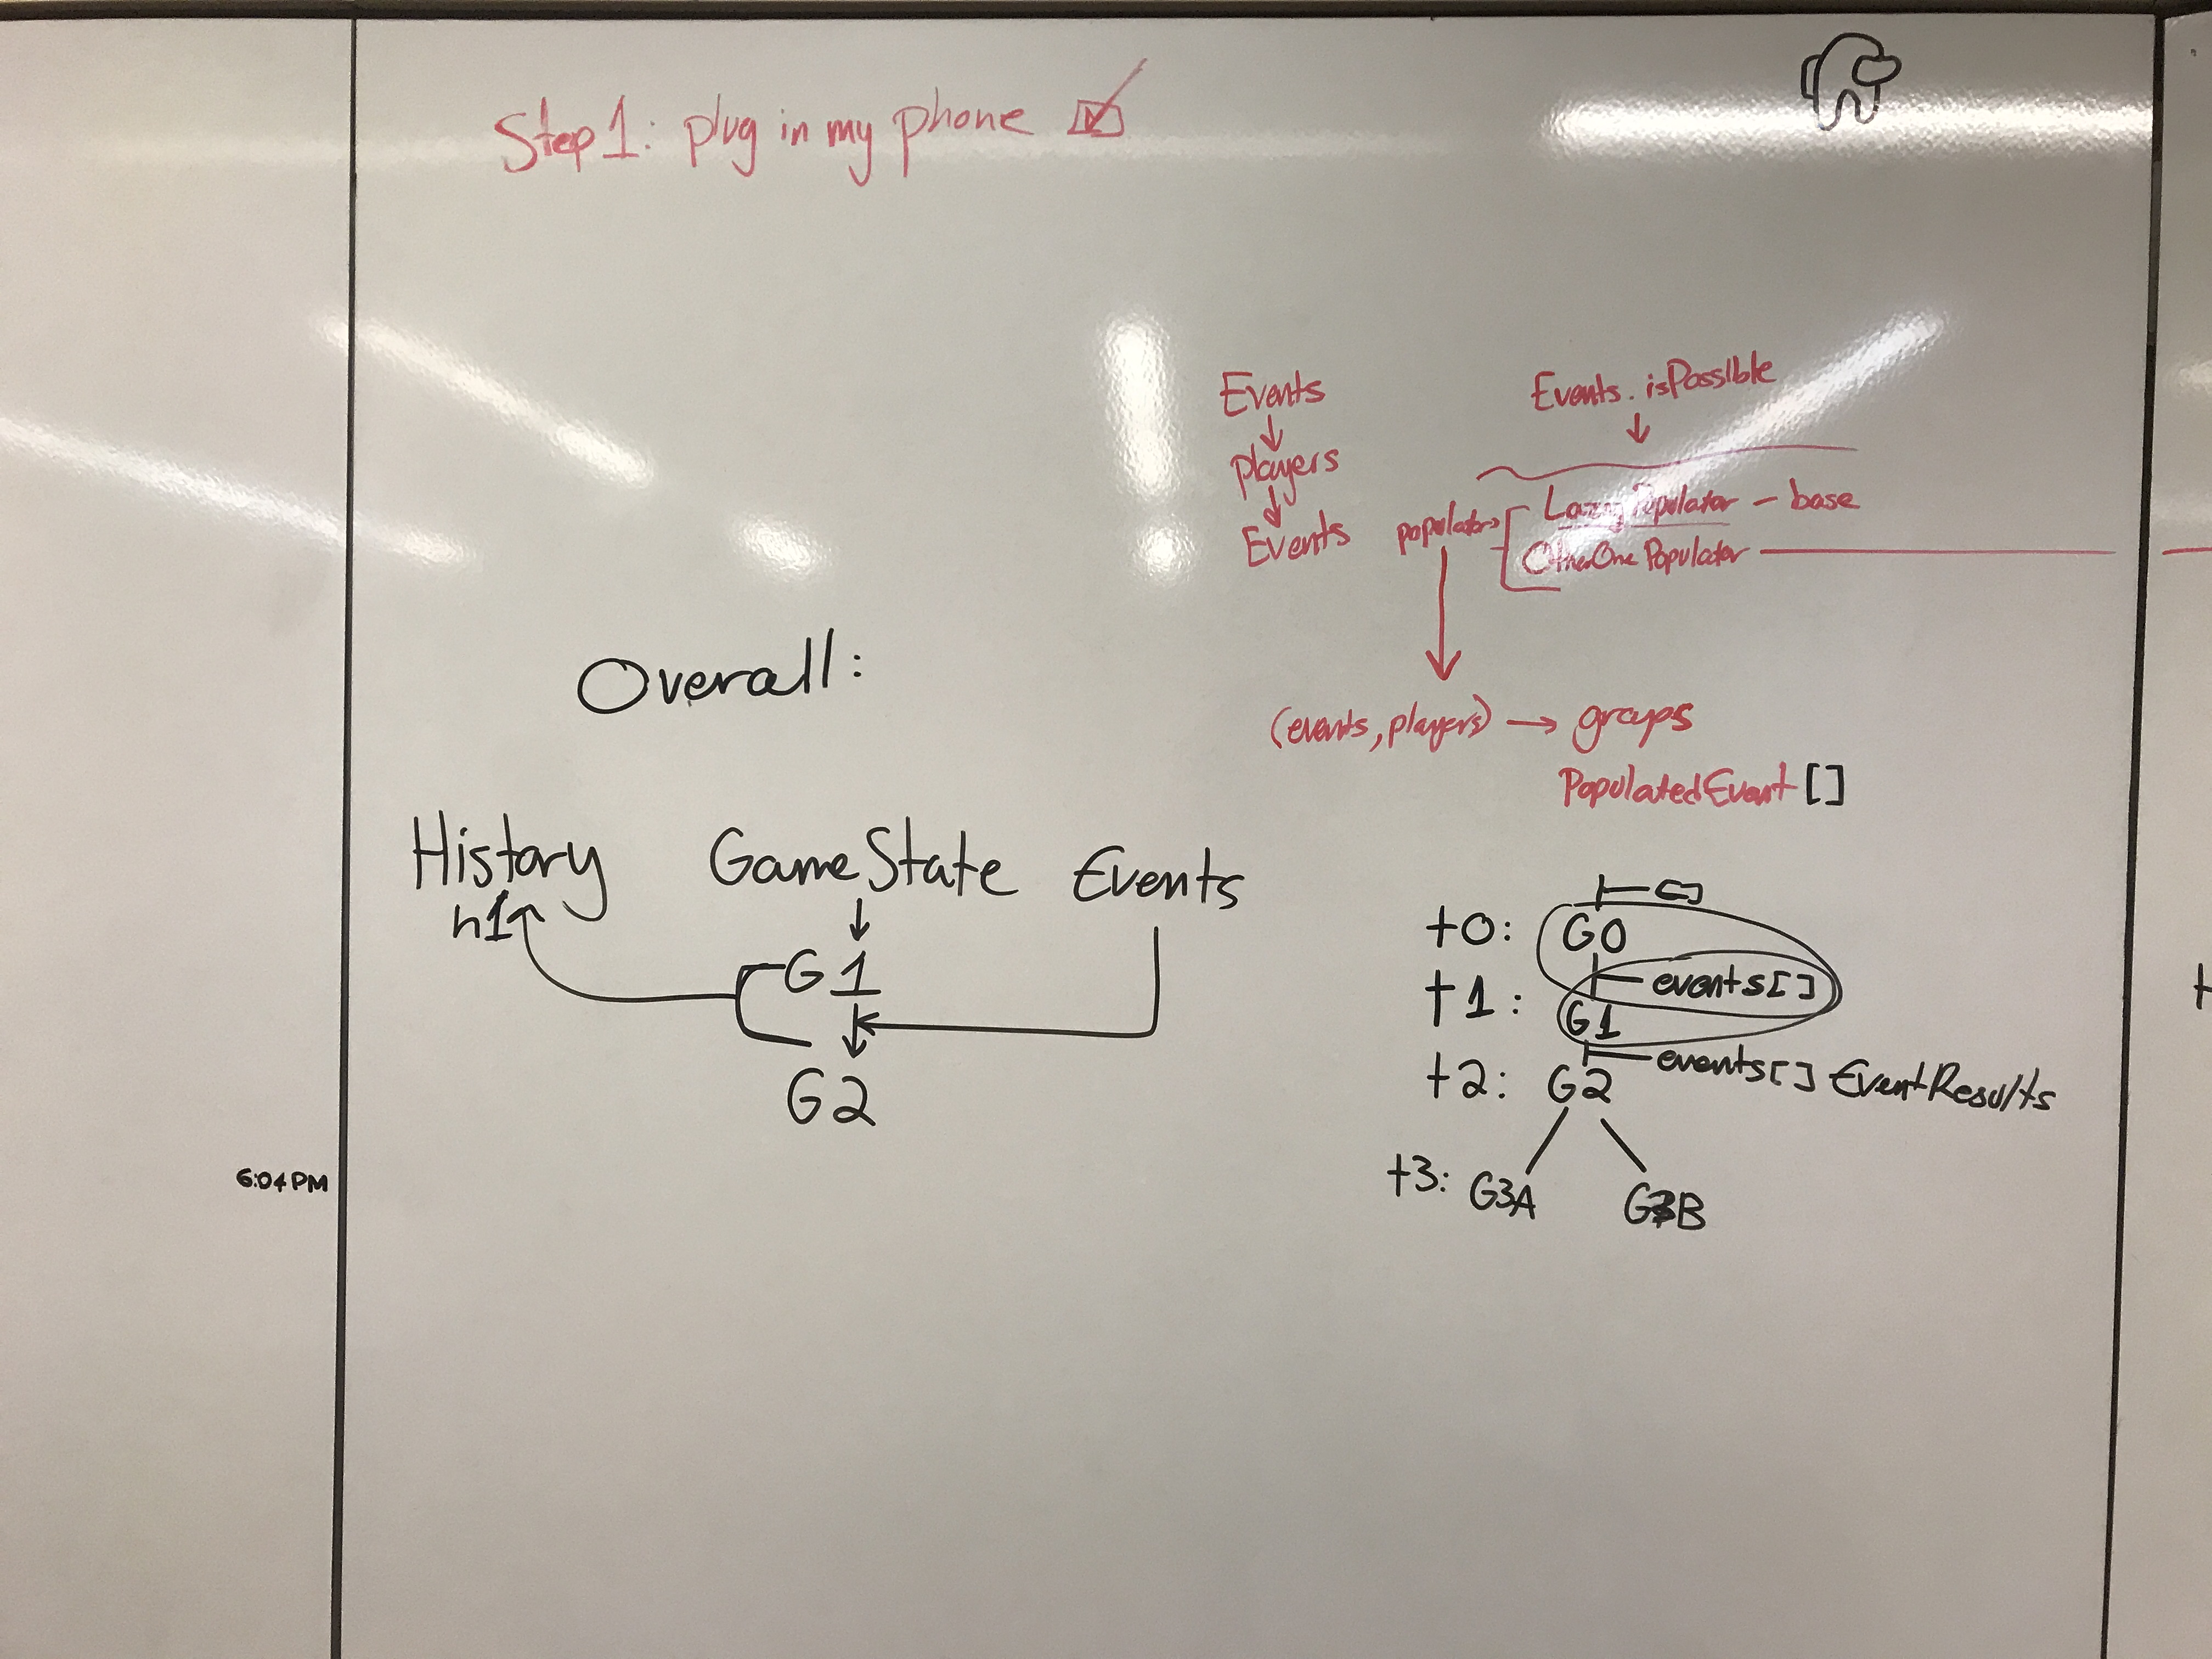 Step 1: plug in my phone
Events
players
Events
Events. isPossible
populators
Lazy Populator - base
OtherOne Populator
(events, players) → groups
PopulatedEvent []
Overall:
History
h1
GameState
G1
G2
Events
[]
t0: G0
events[]
t1: G1
events[] EventResults
t2: G2
t3: G3A G3B
6:04 PM